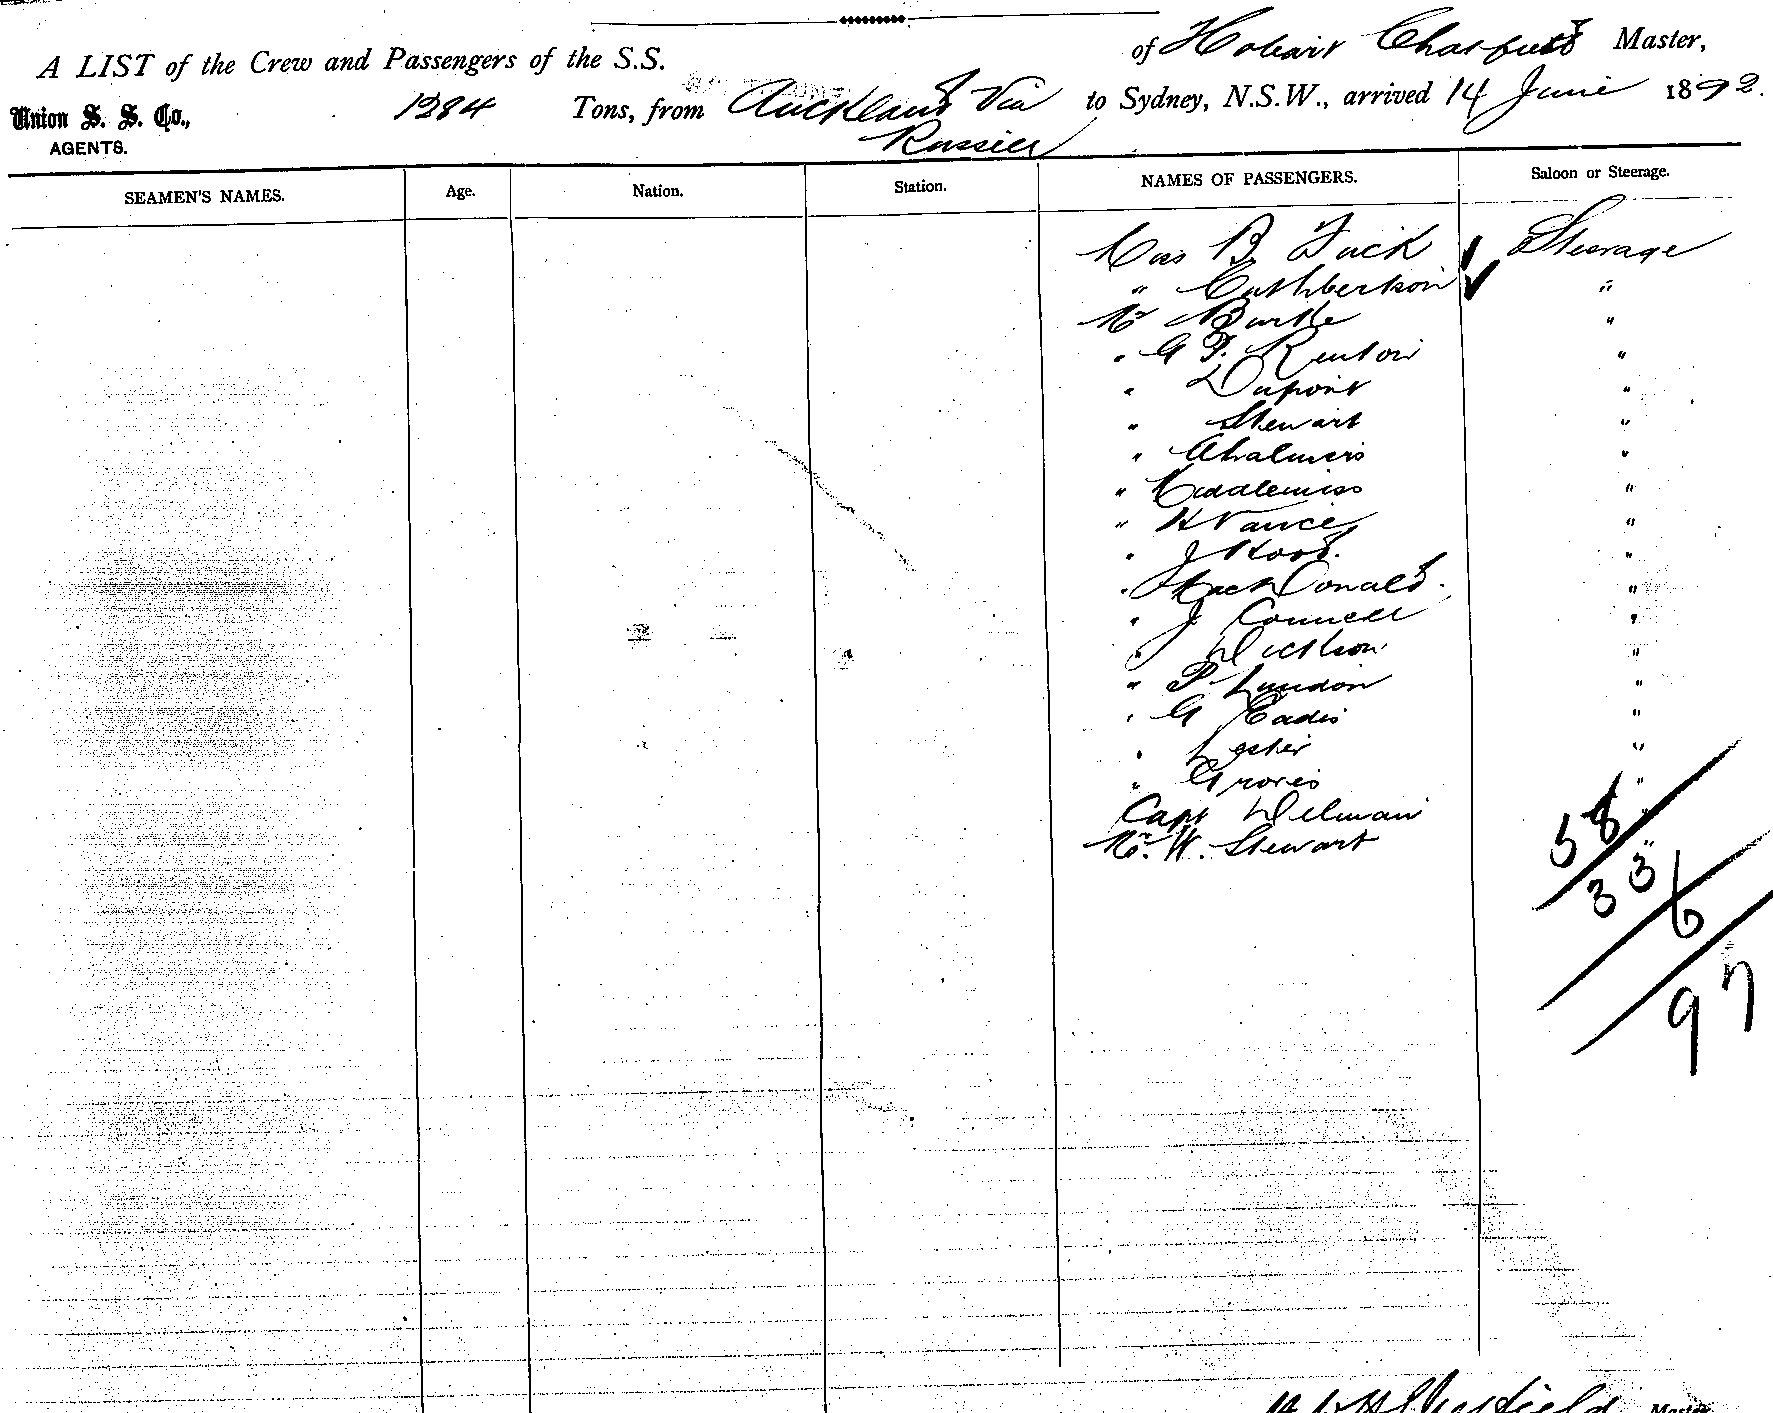 of Hobart Chatfield Master,
A LIST of the Crew and Passengers of the S.S.
Union S. S. Co., 1284 Tons, from Auckland Via to Sydney, N.S.W., arrived 14 June 1892.
Russell
AGENTS.
SEAMEN'S NAMES. Age. Nation. Station. NAMES OF PASSENGERS. Saloon or Steerage.
B. Steerage
" Cuthbertson "
Mr Burke "
" G F. Renton "
" Dupont "
" Stewart "
" Chalmers "
" Middlemiss "
" H Vance "
" J Hood. "
" MacDonald. "
" J Connell "
" Dickson "
" P "
" G Eadis "
" Lester "
" Groves "
Capt "
Mr. W. Stewart "
58
33
6
97
Chatfield Master